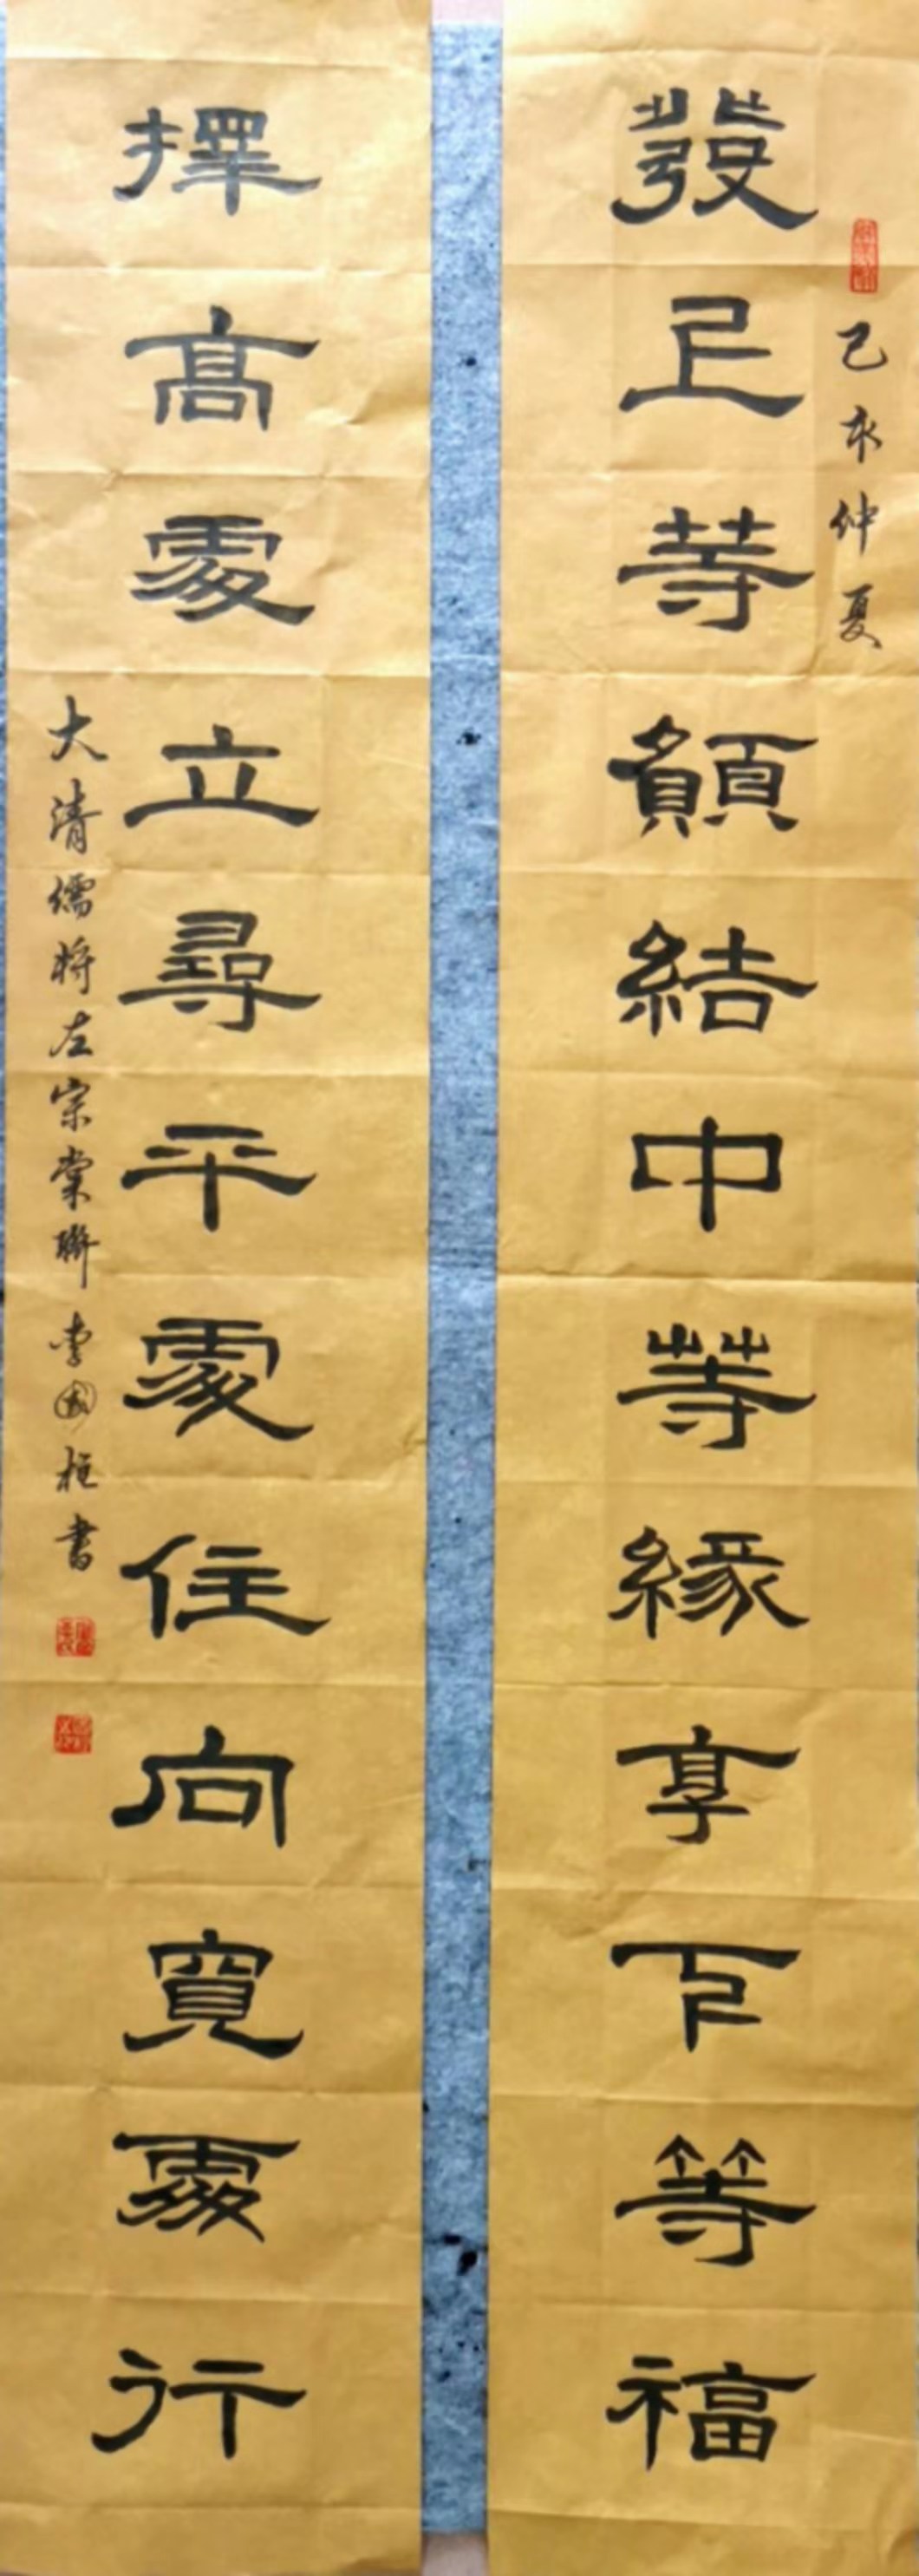 己亥仲夏
發上等願結中等緣享下等福
擇高處立尋平處住向寬處行
大清儒將左宗棠聯李國柱書